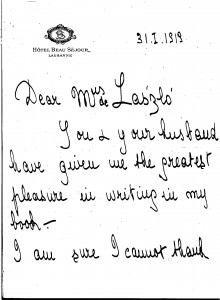 HÔTEL BEAU SÉJOUR
LAUSANNE
31.I.1919
Dear Mrs de László
You & your husband
have given me the greatest
pleasure in writing in my
book.—
I am sure I cannot thank